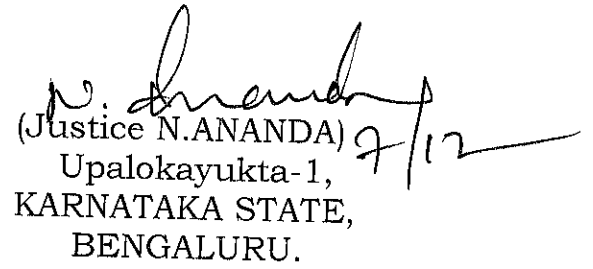 N. Ananda
(Justice N.ANANDA) 7/12
Upalokayukta-1,
KARNATAKA STATE,
BENGALURU.